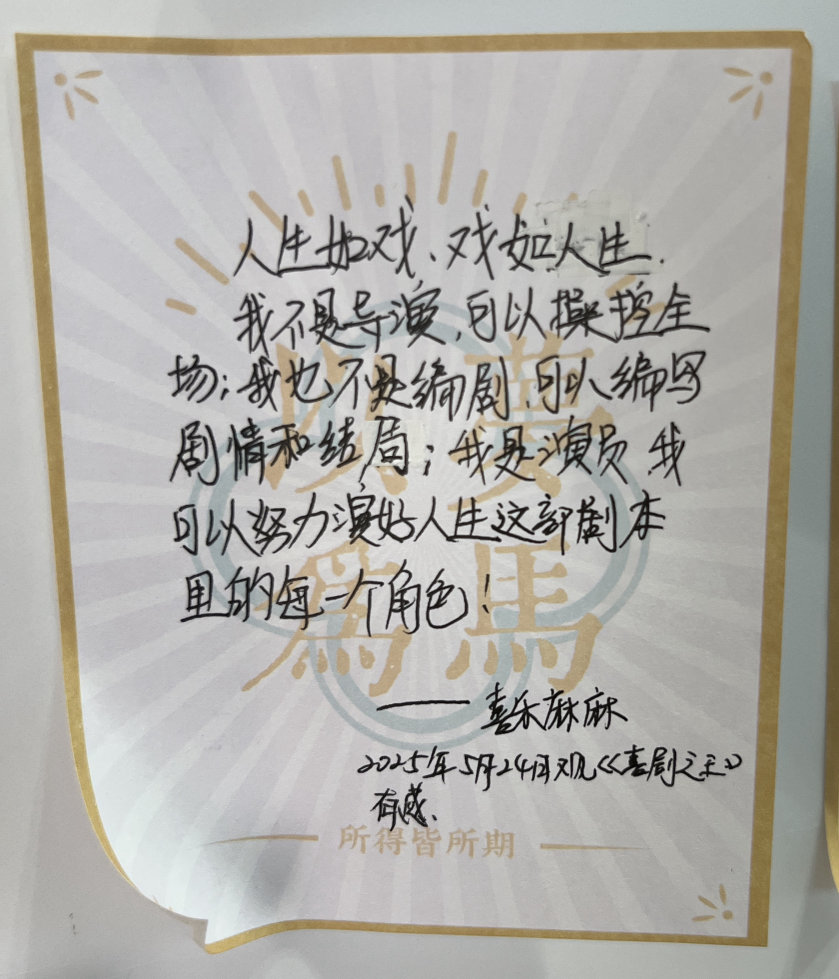 人生如戏、戏如人生.
我不是导演,可以操控全
场;我也不是编剧,可以编写
剧情和结局;我是演员 我
可以努力演好人生这部剧本
里的每一个角色!
——喜乐麻麻
2025年5月24日观《喜剧之王》
有感、
以夢
為馬
所得皆所期